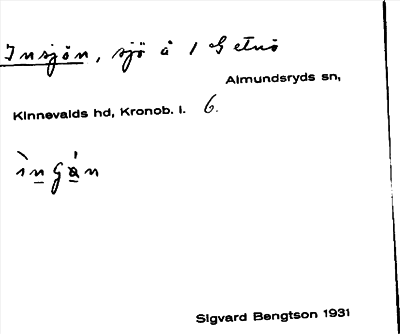 Insjön, sjö å 1 Getnö
Almundsryds sn,
Kinnevalds hd, Kronob. l. 6.
ìngán
Sigvard Bengtson 1931